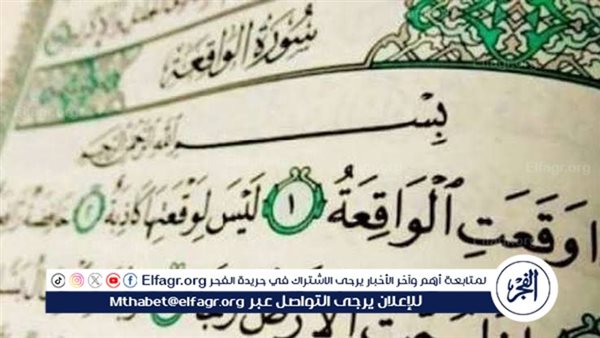 سُورَةُ الوَاقِعَة
Elfagr.org
بِسْمِ اللهِ الرَّحْمٰنِ الرَّحِيمِ
ا وَقَعَتِ ٱلْوَاقِعَةُ ١ لَيْسَ لِوَقْعَتِهَا كَاذِبَةٌ ٢
لمتابعة أهم وآخر الأخبار يرجى الاشتراك في جريدة الفجر Elfagr.org
للإعلان يرجى التواصل عبر Mthabet@elfagr.org
الفجر
الْأَرْضُ